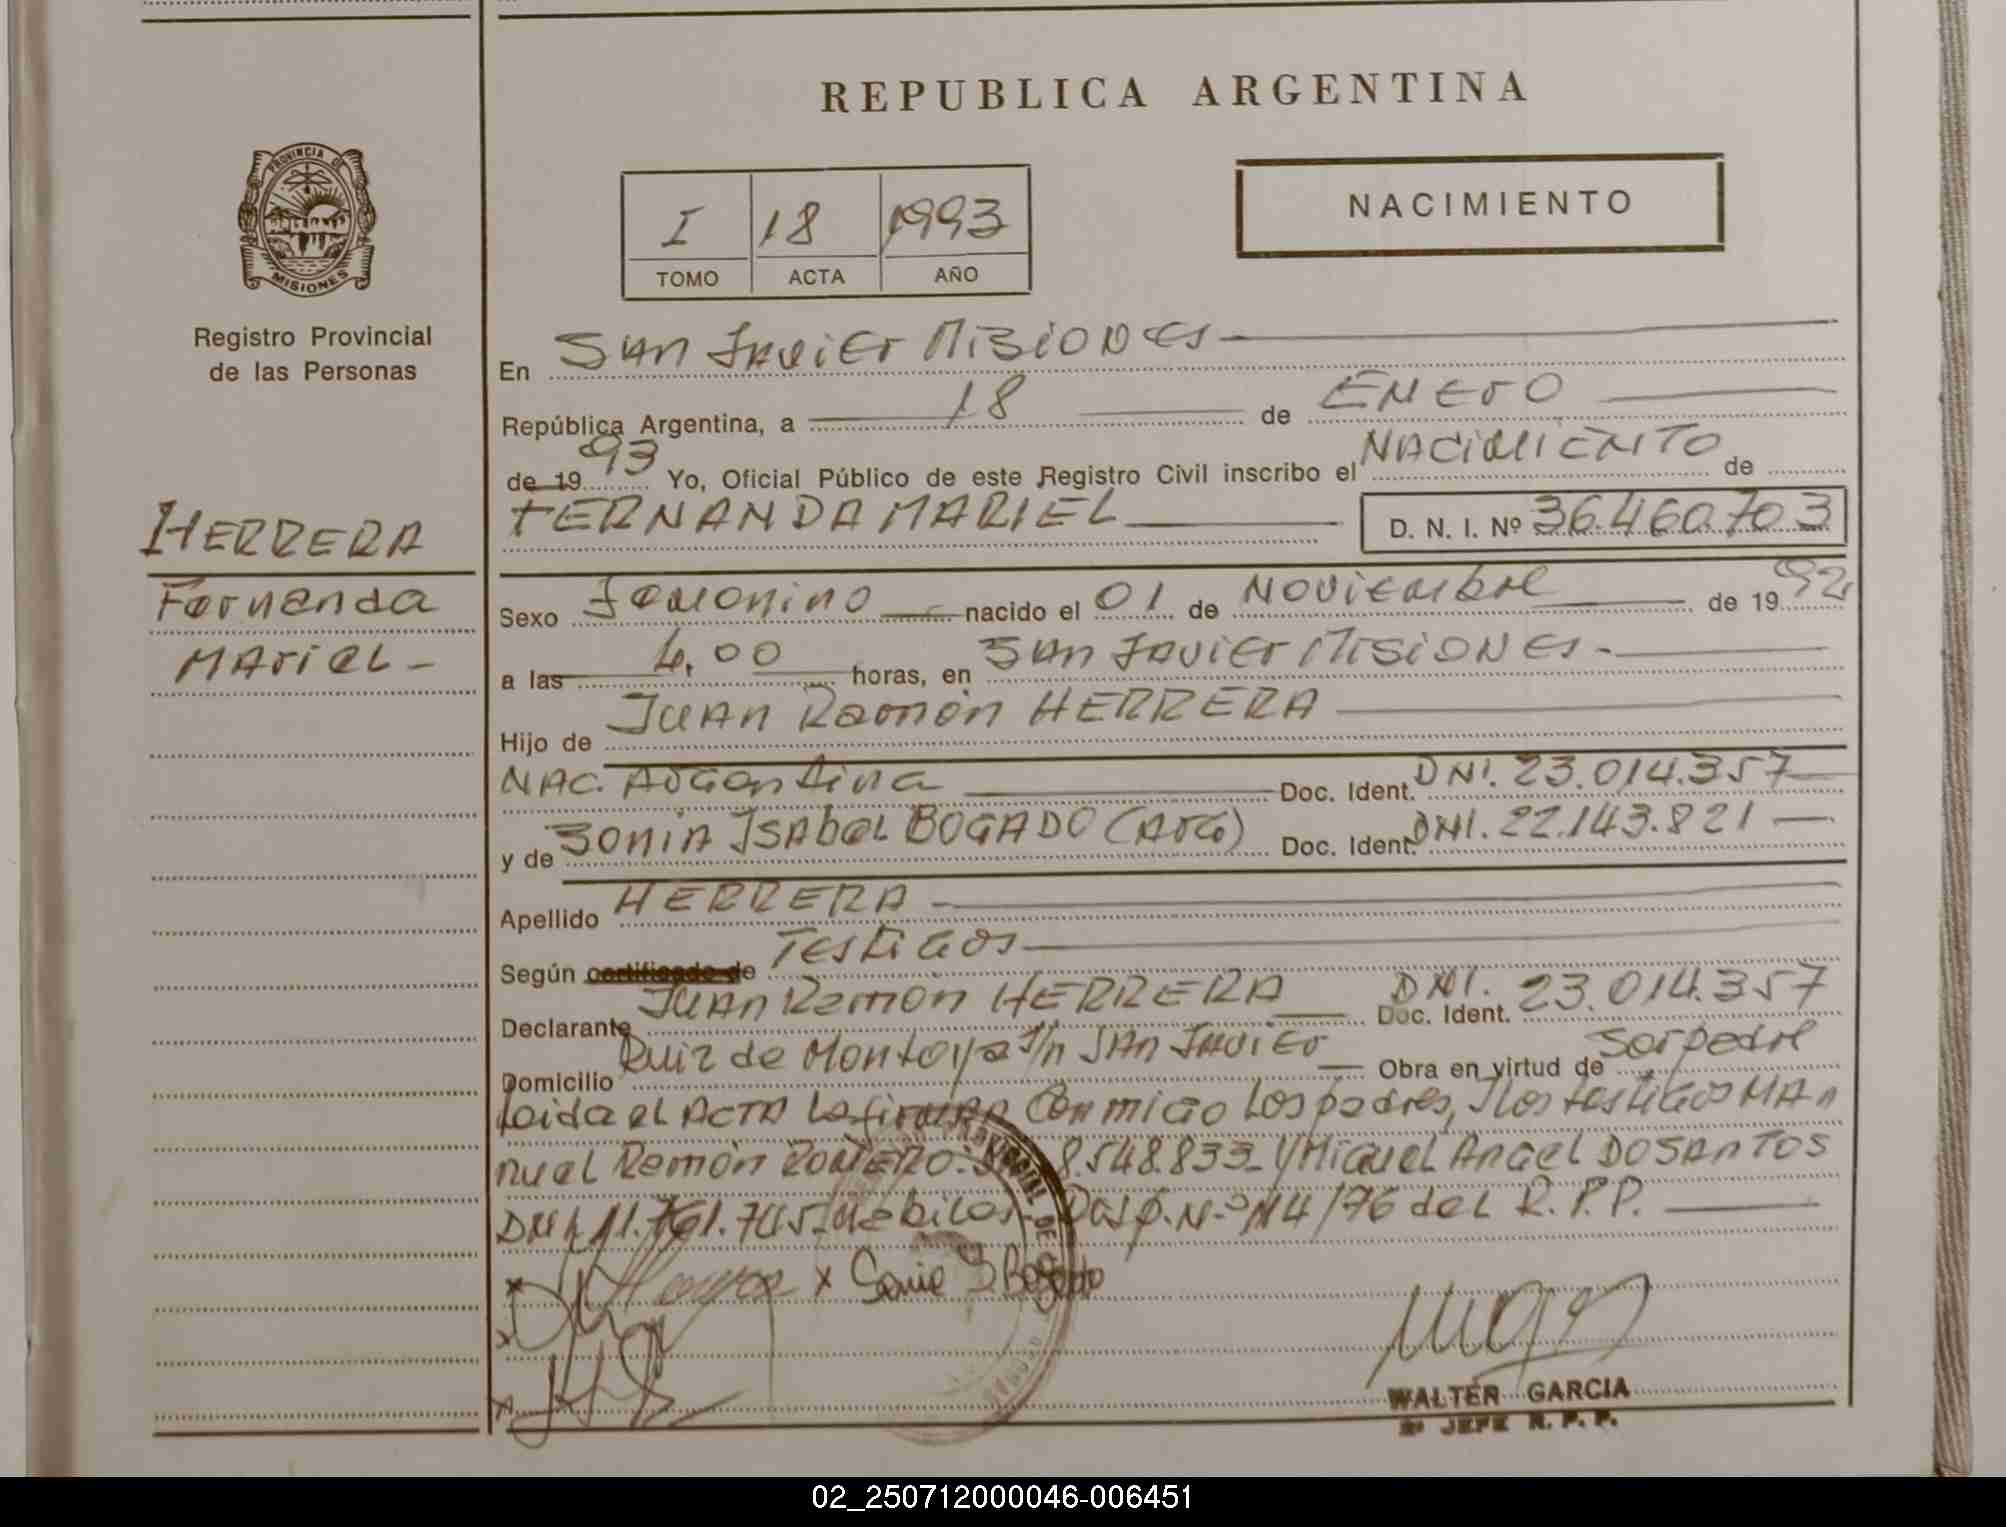 REPUBLICA ARGENTINA
PROVINCIA DE
MISIONES
Registro Provincial
de las Personas
I 18 1993
TOMO ACTA AÑO
NACIMIENTO
En San Javier Misiones
República Argentina, a 18 de Enero
de 19 93 Yo, Oficial Público de este Registro Civil inscribo el NACIMIENTO de
FERNANDA MARIEL D. N. I. Nº 36.460.703
HERRERA
Fernanda
Mariel -
Sexo Femenino nacido el 01 de Noviembre de 19 92
a las 4,00 horas, en San Javier Misiones.-
Hijo de Juan Ramón HERRERA
NAC. Argentina Doc. Ident. DNI. 23.014.357
y de Sonia Isabel BOGADO (ARG) Doc. Ident. DNI. 22.143.821
Apellido HERRERA
Según certificado de Testigos
Declarante Juan Ramón HERRERA Doc. Ident. DNI. 23.014.357
Domicilio Ruiz de Montoya S/n San Javier Obra en virtud de Ser padre
Leida el Acta La firman Conmigo Los padres, y los testigos MAn
nuel Ramón ROMERO. 8.548.833_ y Miguel Angel DOSANTOS
DNI 11.761.745_ Hebiles. Disp. N.º 114/76 del R.P.P.
x x Sonia I Bogado
x
x
WALTER GARCIA
2º JEFE R. P. P.
02_250712000046-006451